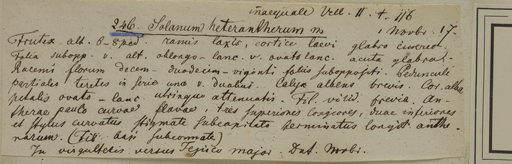 inaequale Vell. II. t. 116
246. Solanum heterantherum m Novbr. 17-
Frutex alt. 6-8 ped. ramis laxis, cortice laevi glabro cinereo.
Folia subopp. v. alt. oblongo-lanc. v. ovato lanc. acuta glabra.
Racemis florum decem- duodecim-viginti foliis suboppositis. Pedunculi
partiales teretes in serie una v. duabus. Calyx albens brevis. Cor. alba
petalis ovato-lanc. utrinque attenuatis. Fil. virid. brevia. An-
therae paulo curvae flavae. Tres superiores longiores, duae inferiores
et stylus curvatus stigmate subcapitato terminatus longit. anthe-
rarum. (Fil. basi subconnata).
In virgultetis versus major. Dat. Novbr.